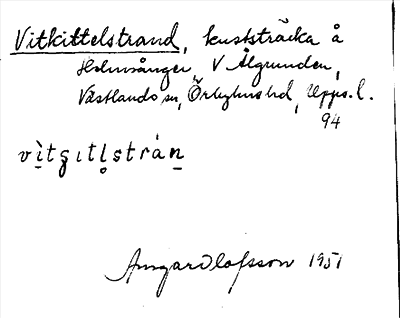 Vitkittelstrand, kuststräcka å
Holmsånger, V Ålgrunden,
Västlands sn, Örbyhus hd, Upps. l.
94
vìtgıtl̥strán
Ansgar Olofsson 1951